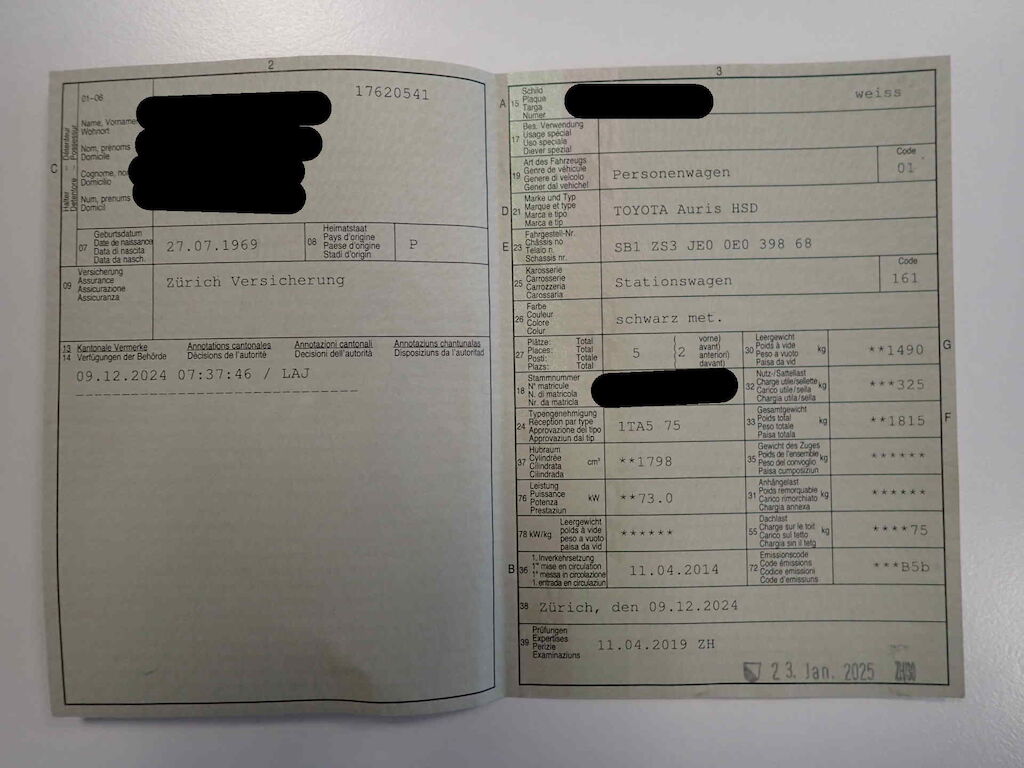 2
01-06
17620541
Name, Vorname
Wohnort
Nom, prénoms
Domicile
Cognome,
Domicilio
Num, prenums
Domicil
Halter
Détenteur
Detentore
Possessur
C
07
Geburtsdatum
Date de naissance
Data di nascita
Data da nasch.
27.07.1969
08
Heimatstaat
Pays d'origine
Paese d'origine
Stadi d'origin
P
09
Versicherung
Assurance
Assicurazione
Assicuranza
Zürich Versicherung
13 Kantonale Vermerke Annotations cantonales Annotazioni cantonali Annotaziuns chantunalas
14 Verfügungen der Behörde Décisions de l'autorité Decisioni dell'autorità Disposiziuns da l'autoritad
09.12.2024 07:37:46 / LAJ
3
A
15
Schild
Plaque
Targa
Numer
weiss
17
Bes. Verwendung
Usage spécial
Uso speciale
Diever spezial
19
Art des Fahrzeugs
Genre de véhicule
Genere di veicolo
Gener dal vehichel
Personenwagen
Code
01
D
21
Marke und Typ
Marque et type
Marca e tipo
Marca e tip
TOYOTA Auris HSD
E
23
Fahrgestell-Nr.
Châssis no
Telaio n.
Schassis nr.
SB1 ZS3 JE0 0E0 398 68
25
Karosserie
Carrosserie
Carrozzeria
Carossaria
Stationswagen
Code
161
26
Farbe
Couleur
Colore
Colur
schwarz met.
27
Plätze: Total
Places: Total
Posti: Totale
Plazs: Total
5
(2
vorne)
avant)
anteriori)
davant)
30
Leergewicht
Poids à vide
Peso a vuoto
Paisa da vid
kg
**1490
G
18
Stammnummer
N° matricule
N. di matricola
Nr. da matricla
32
Nutz-/Sattellast
Charge utile/sellette
Carico utile/sella
Chargia utila/sella
kg
***325
24
Typengenehmigung
Réception par type
Approvazione del tipo
Approvaziun dal tip
1TA5 75
33
Gesamtgewicht
Poids total
Peso totale
Paisa totala
kg
**1815
F
37
Hubraum
Cylindrée
Cilindrata
Cilindrada
cm³
**1798
35
Gewicht des Zuges
Poids de l'ensemble
Peso del convoglio
Paisa cumposiziun
kg
******
76
Leistung
Puissance
Potenza
Prestaziun
kW
**73.0
31
Anhängelast
Poids remorquable
Carico rimorchiato
Chargia annexa
kg
******
78 kW/kg
Leergewicht
poids à vide
peso a vuoto
paisa da vid
******
55
Dachlast
Charge sur le toit
Carico sul tetto
Chargia sin il tetg
kg
****75
B
36
1. Inverkehrsetzung
1re mise en circulation
1a messa in circolazione
1. entrada en circulaziun
11.04.2014
72
Emissionscode
Code émissions
Codice emissioni
Code d'emissiuns
***B5b
38
Zürich, den 09.12.2024
39
Prüfungen
Expertises
Perizie
Examinaziuns
11.04.2019 ZH
23. Jan. 2025